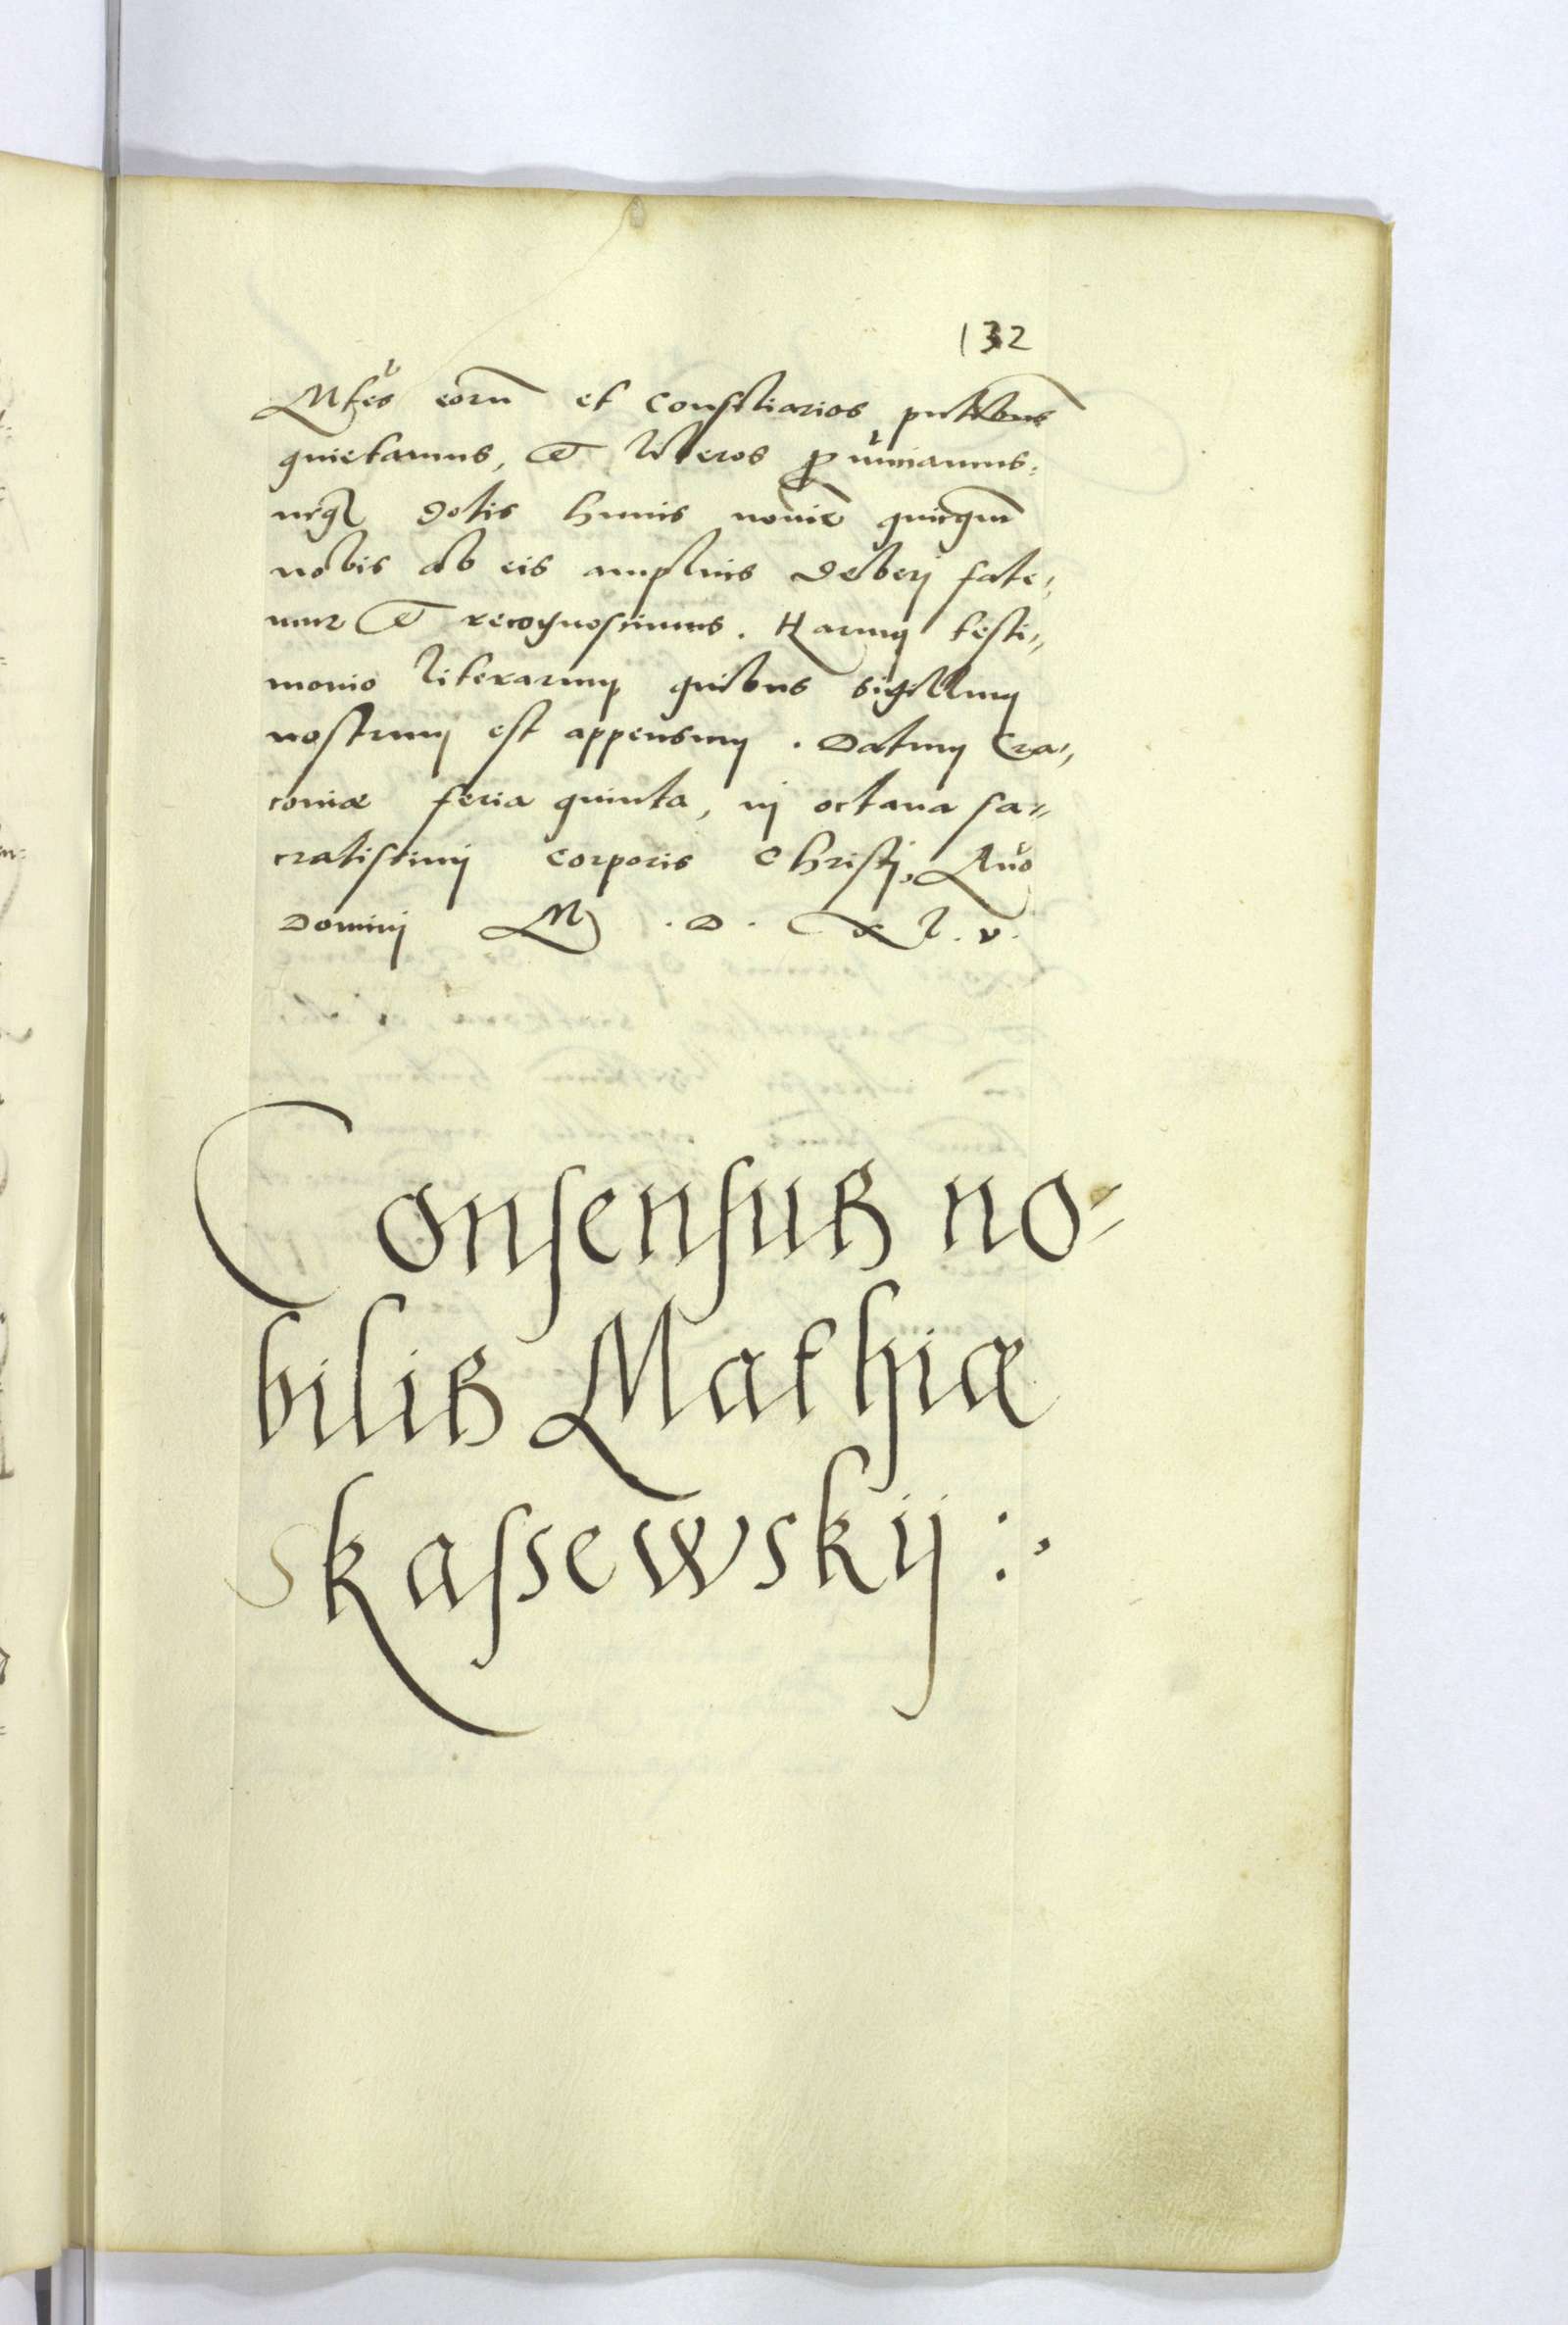 132
Mtes eorū et Consiliarios pntibus
quietamus, et liberos pnūciamus.
neqꝫ dotis huius noīe quicqm̄
nobis ab eis amplius deberj fate,,
mur et recognoscimus. Harum testi,,
monio literarum quibus sigillum
nostrum est appensum. Datum Cra,,
coviæ feria quinta, in octava sa,,
cratissimj corporis Christj, Año
Dominj M. D. XLV.
Consensus no=
bilis Mathiæ
Skassewskij:.